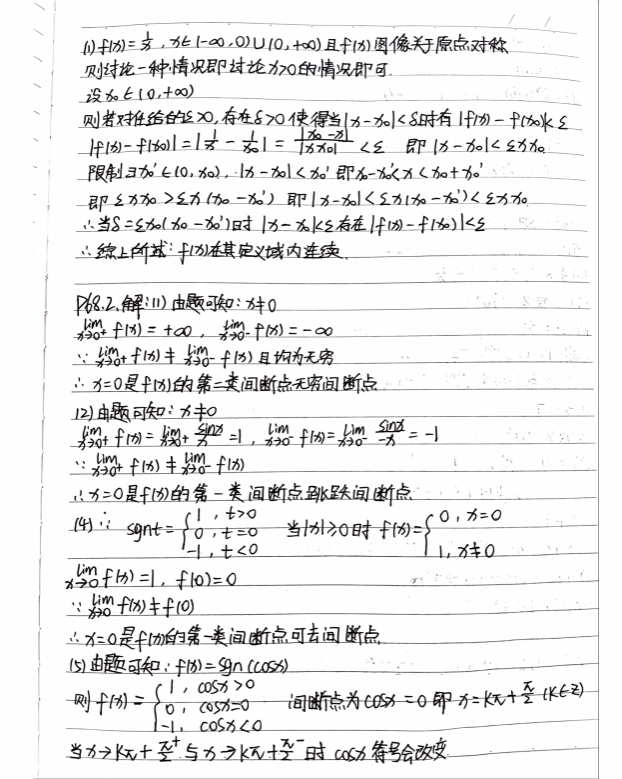 (1) f(x)=1/x, x∈(-∞,0)∪(0,+∞)且f(x)图像关于原点对称
则讨论一种情况即讨论x>0的情况即可.
设x₀∈(0,+∞)
则若对任给的ε>0,存在δ>0使得当|x-x₀|<δ时有|f(x)-f(x₀)|<ε
|f(x)-f(x₀)|=|1/x - 1/x₀|=|x₀-x|/|x x₀|<ε 即|x-x₀|<εxx₀
限制∃x₀'∈(0,x₀),|x-x₀|<x₀'即x₀-x₀'<x<x₀+x₀'
即εxx₀>εx(x₀-x₀')即|x-x₀|<εx(x₀-x₀')<εxx₀
∴当δ=εx₀(x₀-x₀')时|x-x₀|<ε存在|f(x)-f(x₀)|<ε
∴综上所述:f(x)在其定义域内连续.
P68.2.解:(1)由题可知:x≠0
lim x→0⁺ f(x)=+∞, lim x→0⁻ f(x)=-∞
∵lim x→0⁺ f(x)≠lim x→0⁻ f(x)且均为无穷
∴x=0是f(x)的第二类间断点无穷间断点
(2)由题可知:x≠0
lim x→0⁺ f(x)=lim x→0⁺ sinx/x=1, lim x→0⁻ f(x)=lim x→0⁻ sinx/-x=-1
∵lim x→0⁺ f(x)≠lim x→0⁻ f(x)
∴x=0是f(x)的第一类间断点跳跃间断点
(4)∵ sgnt={1, t>0; 0, t=0; -1, t<0 当|x|≥0时 f(x)={0, x=0; 1, x≠0
lim x→0 f(x)=1, f(0)=0
∵lim x→0 f(x)≠f(0)
∴x=0是f(x)的第一类间断点可去间断点
(5)由题可知:f(x)=sgn(cosx)
则f(x)={1, cosx>0; 0, cosx=0; -1, cosx<0 间断点为cosx=0即x=kπ+π/2 (k∈Z)
当x→kπ+π/2⁺与x→kπ+π/2⁻时cosx符号会改变